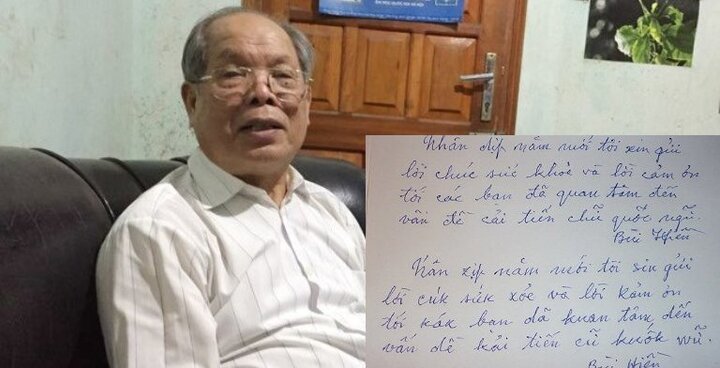 Nhân dịp năm mới tôi xin gửi
lời chúc sức khỏe và lời cảm ơn
tới các bạn đã quan tâm đến
vấn đề cải tiến chữ quốc ngữ.
Bùi Hiền
zịp năm mới tôi sin gửi
lời cúk sứk xỏe và lời kảm ơn
tới kák bạn dã kuan tâm dến
vấn dề kải tiến cữ kuốk wữ.
Bùi Hiền